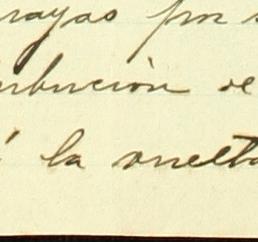 rayas por s
ribución de
á la vuelta